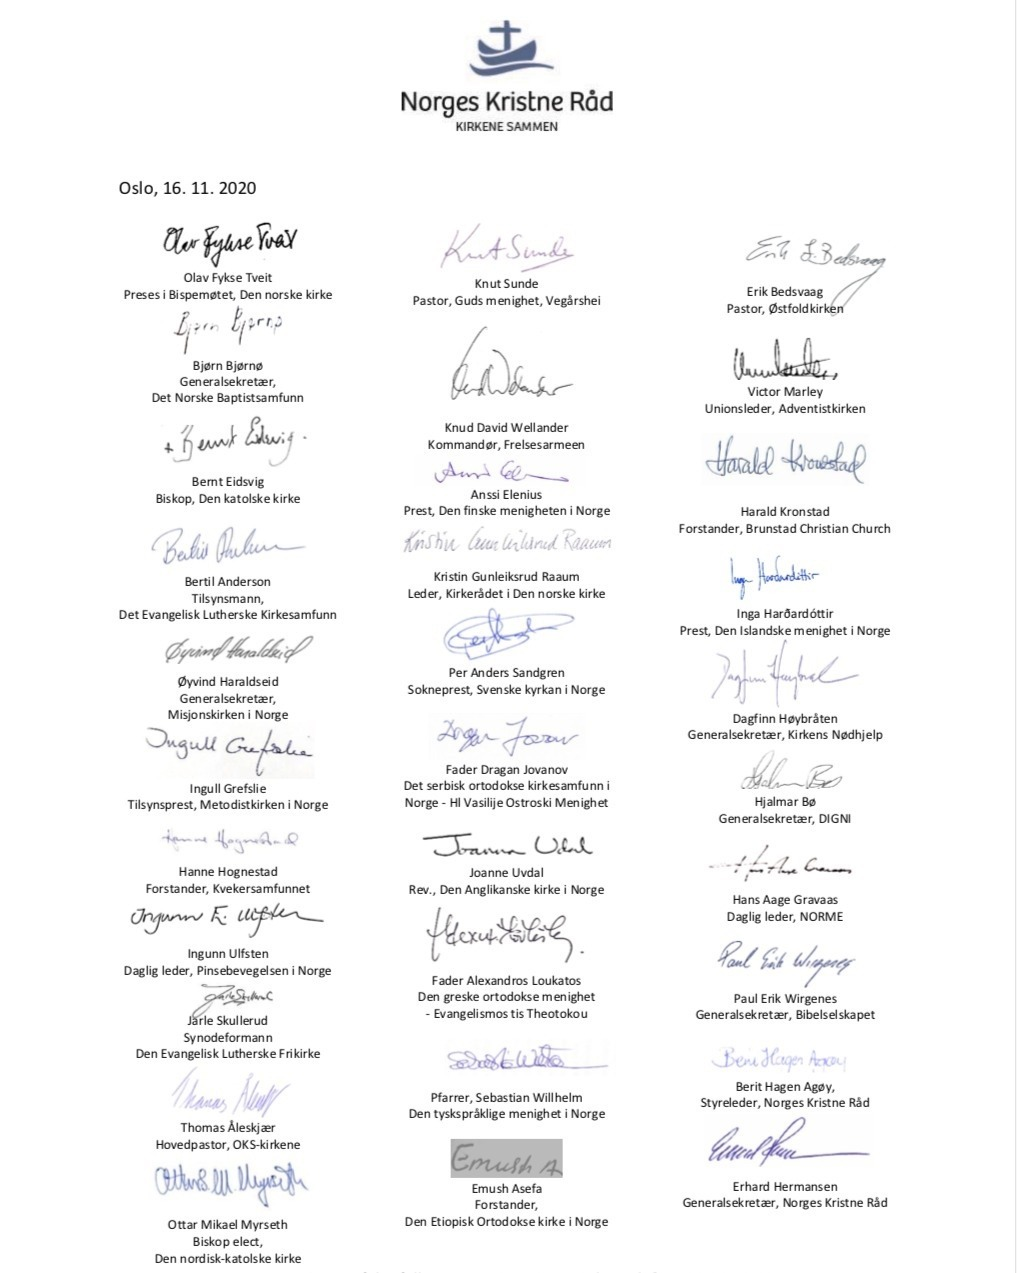 Norges Kristne Råd
KIRKENE SAMMEN
Oslo, 16. 11. 2020
Olav Fykse Tveit
Olav Fykse Tveit
Preses i Bispemøtet, Den norske kirke
Bjørn Bjørnø
Bjørn Bjørnø
Generalsekretær,
Det Norske Baptistsamfunn
+ Bernt Eidsvig.
Bernt Eidsvig
Biskop, Den katolske kirke
Bertil Anderson
Tilsynsmann,
Det Evangelisk Lutherske Kirkesamfunn
Øyvind Haraldseid
Øyvind Haraldseid
Generalsekretær,
Misjonskirken i Norge
Ingull Grefslie
Ingull Grefslie
Tilsynsprest, Metodistkirken i Norge
Hanne Hognestad
Hanne Hognestad
Forstander, Kvekersamfunnet
Ingunn E. Ulfsten
Ingunn Ulfsten
Daglig leder, Pinsebevegelsen i Norge
Jarle Skullerud
Synodeformann
Den Evangelisk Lutherske Frikirke
Thomas Åleskjær
Hovedpastor, OKS-kirkene
Ottar M. Myrseth
Ottar Mikael Myrseth
Biskop elect,
Den nordisk-katolske kirke
Knut Sunde
Knut Sunde
Pastor, Guds menighet, Vegårshei
Knud David Wellander
Kommandør, Frelsesarmeen
Anssi Elenius
Prest, Den finske menigheten i Norge
Kristin Gunleiksrud Raaum
Kristin Gunleiksrud Raaum
Leder, Kirkerådet i Den norske kirke
Per Anders Sandgren
Sokneprest, Svenske kyrkan i Norge
Fader Dragan Jovanov
Det serbisk ortodokse kirkesamfunn i
Norge - Hl Vasilije Ostroski Menighet
Joanna Udal
Joanne Uvdal
Rev., Den Anglikanske kirke i Norge
Fader Alexandros Loukatos
Den greske ortodokse menighet
- Evangelismos tis Theotokou
Pfarrer, Sebastian Willhelm
Den tyskspråklige menighet i Norge
Emush A
Emush Asefa
Forstander,
Den Etiopisk Ortodokse kirke i Norge
Erik L. Bedsvaag
Erik Bedsvaag
Pastor, Østfoldkirken
Victor Marley
Unionsleder, Adventistkirken
Harald Kronstad
Harald Kronstad
Forstander, Brunstad Christian Church
Inga Harðardóttir
Inga Harðardóttir
Prest, Den Islandske menighet i Norge
Dagfinn Høybråten
Dagfinn Høybråten
Generalsekretær, Kirkens Nødhjelp
Hjalmar Bø
Hjalmar Bø
Generalsekretær, DIGNI
Hans Aage Gravaas
Hans Aage Gravaas
Daglig leder, NORME
Paul Erik Wirgenes
Paul Erik Wirgenes
Generalsekretær, Bibelselskapet
Berit Hagen Agøy
Berit Hagen Agøy,
Styreleder, Norges Kristne Råd
Erhard Hermansen
Generalsekretær, Norges Kristne Råd